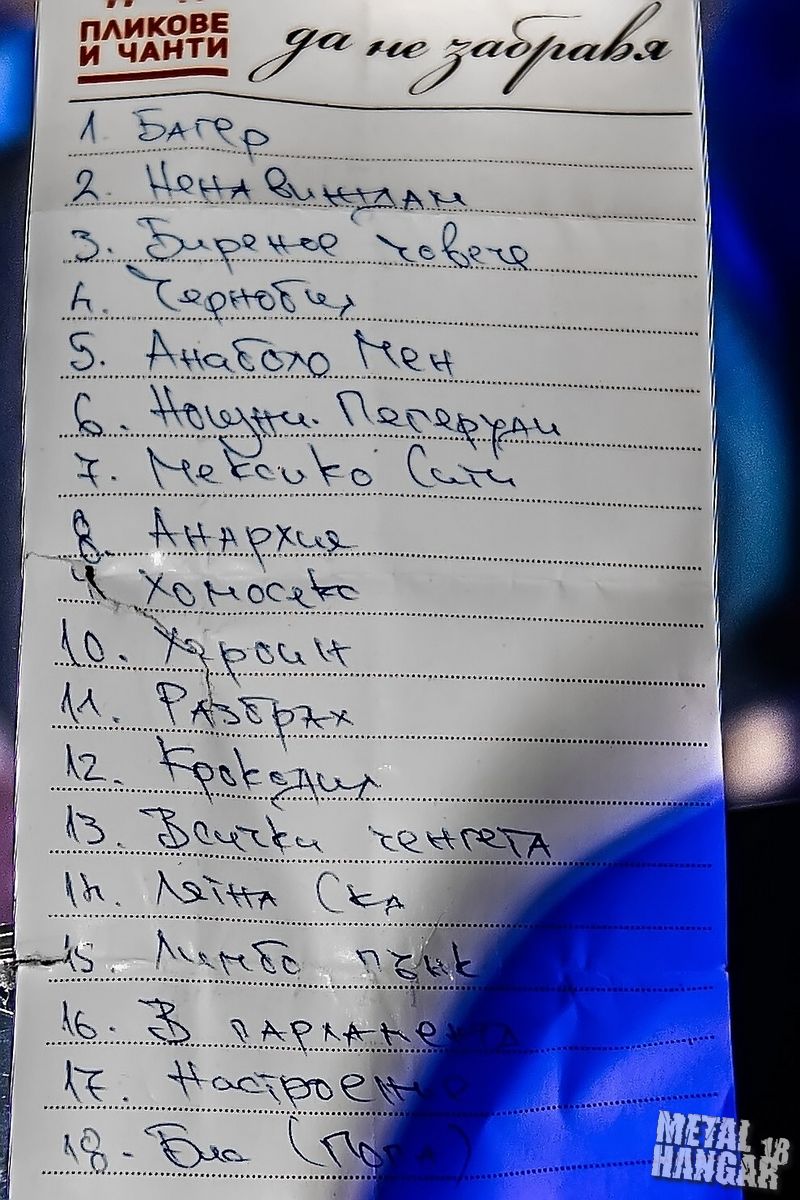 ПЛИКОВЕ
И ЧАНТИ
да не забравя
1. Багер
2. Ненавиждам
3. Бирено човече
4. Чернобил
5. Анаболо Мен
6. Нощни Пеперуди
7. Мексико Сити
8. Анархия
9. Хомосекс
10. Хероин
11. Разбрах
12. Крокодил
13. Всички ченгета
14. Лайна Ска
15 Лимбо пънк
16. В парламента
17. Настроение
18. Биа (Пора)
METAL
HANGAR 18